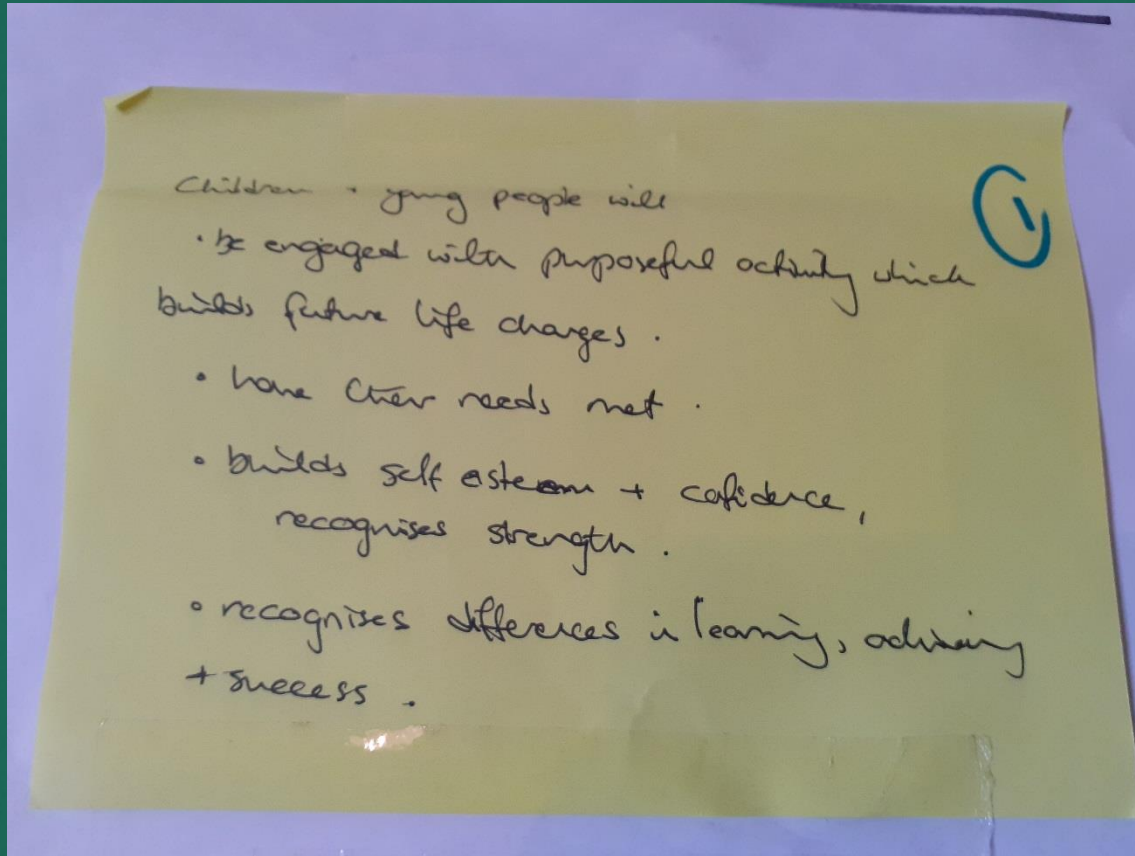 Children + young people will
①
• be engaged with purposeful activity which
builds future life changes.
• have their needs met.
• builds self esteem + cofidence,
recognises strength.
• recognises differences in learning, achieving
+ success.